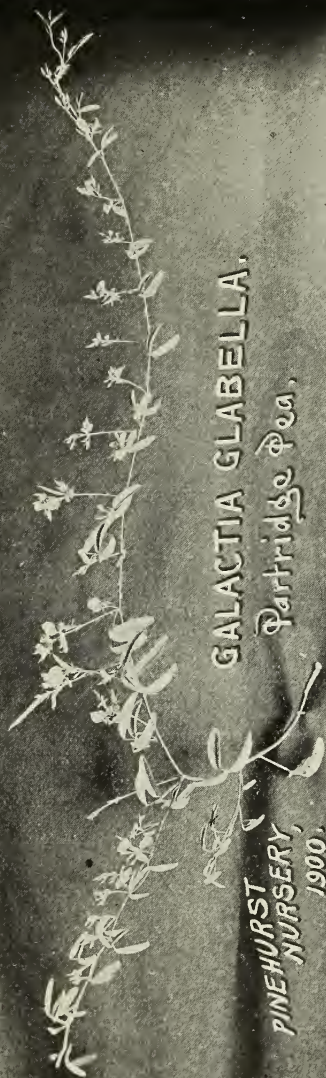 GALACTIA GLABELLA.
Partridge Pea.
PINEHURST
NURSERY,
1900.